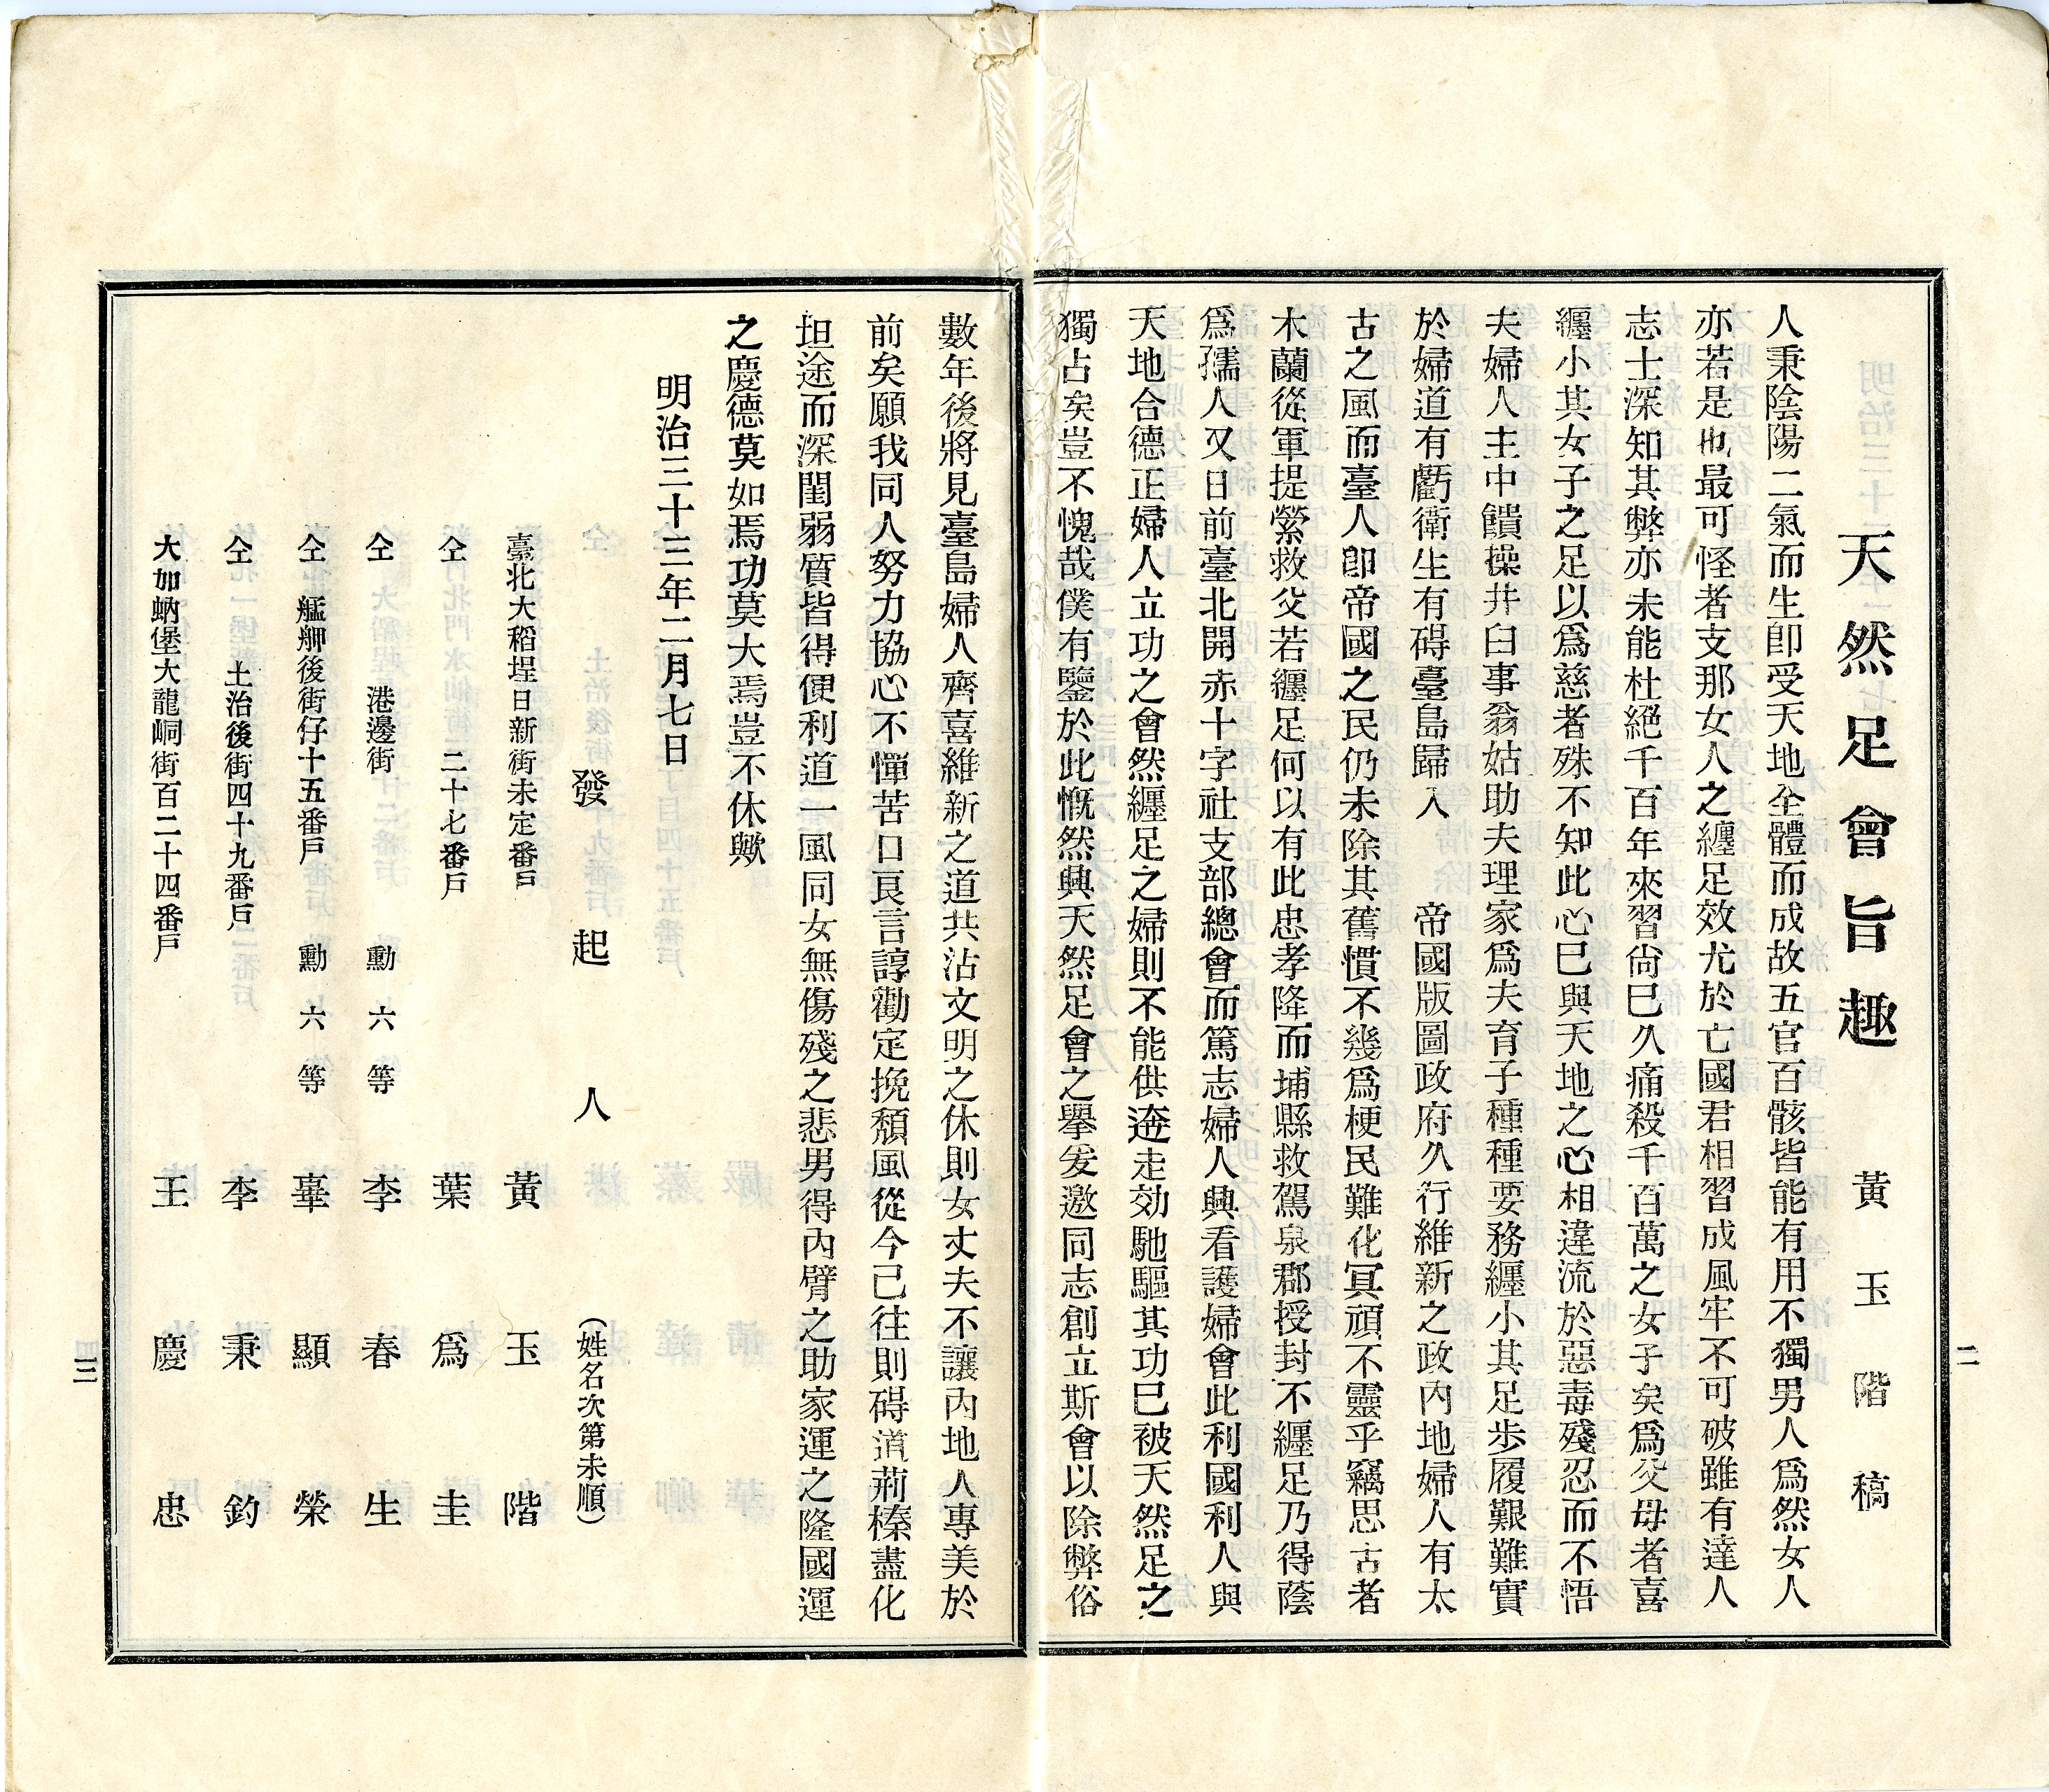 天然足會旨趣　黃玉階稿
人秉陰陽二氣而生卽受天地全體而成故五官百骸皆能有用不獨男人爲然女人
亦若是也最可怪者支那女人之纏足效尤於亡國君相習成風牢不可破雖有達人
志士深知其弊亦未能杜絕千百年來習尙已久痛殺千百萬之女子矣爲父母者喜
纏小其女子之足以爲慈者殊不知此心已與天地之心相違流於惡毒殘忍而不悟
夫婦人主中饋操井臼事翁姑助夫理家爲夫育子種種要務纏小其足步履艱難實
於婦道有虧衛生有碍臺島歸入　帝國版圖政府久行維新之政內地婦人有太
古之風而臺人卽帝國之民仍未除其舊慣不幾爲梗民難化冥頑不靈乎竊思古者
木蘭從軍提縈救父若纏足何以有此忠孝降而埔縣救駕泉郡授封不纏足乃得蔭
爲孺人又日前臺北開赤十字社支部總會而篤志婦人興看護婦會此利國利人與
天地合德正婦人立功之會然纏足之婦則不能供遊走効馳驅其功已被天然足之
獨占矣豈不愧哉僕有鑒於此慨然興天然足會之擧爰邀同志創立斯會以除弊俗
二
數年後將見臺島婦人齊喜維新之道共沾文明之休則女丈夫不讓內地人專美於
前矣願我同人努力協心不憚苦口良言諄勸定挽頹風從今已往則碍道荊榛盡化
坦途而深閨弱質皆得便利道一風同女無傷殘之悲男得內臂之助家運之隆國運
之慶德莫如焉功莫大焉豈不休歟
明治三十三年二月七日
發起人（姓名次第未順）
臺北大稻埕日新街未定番戶　黃玉階
仝　二十七番戶　葉爲圭
仝　港邊街　勳六等　李春生
仝　艋舺後街仔十五番戶　勳六等　辜顯榮
仝　土治後街四十九番戶　李秉鈞
大加蚋堡大龍峒街百二十四番戶　王慶忠
三